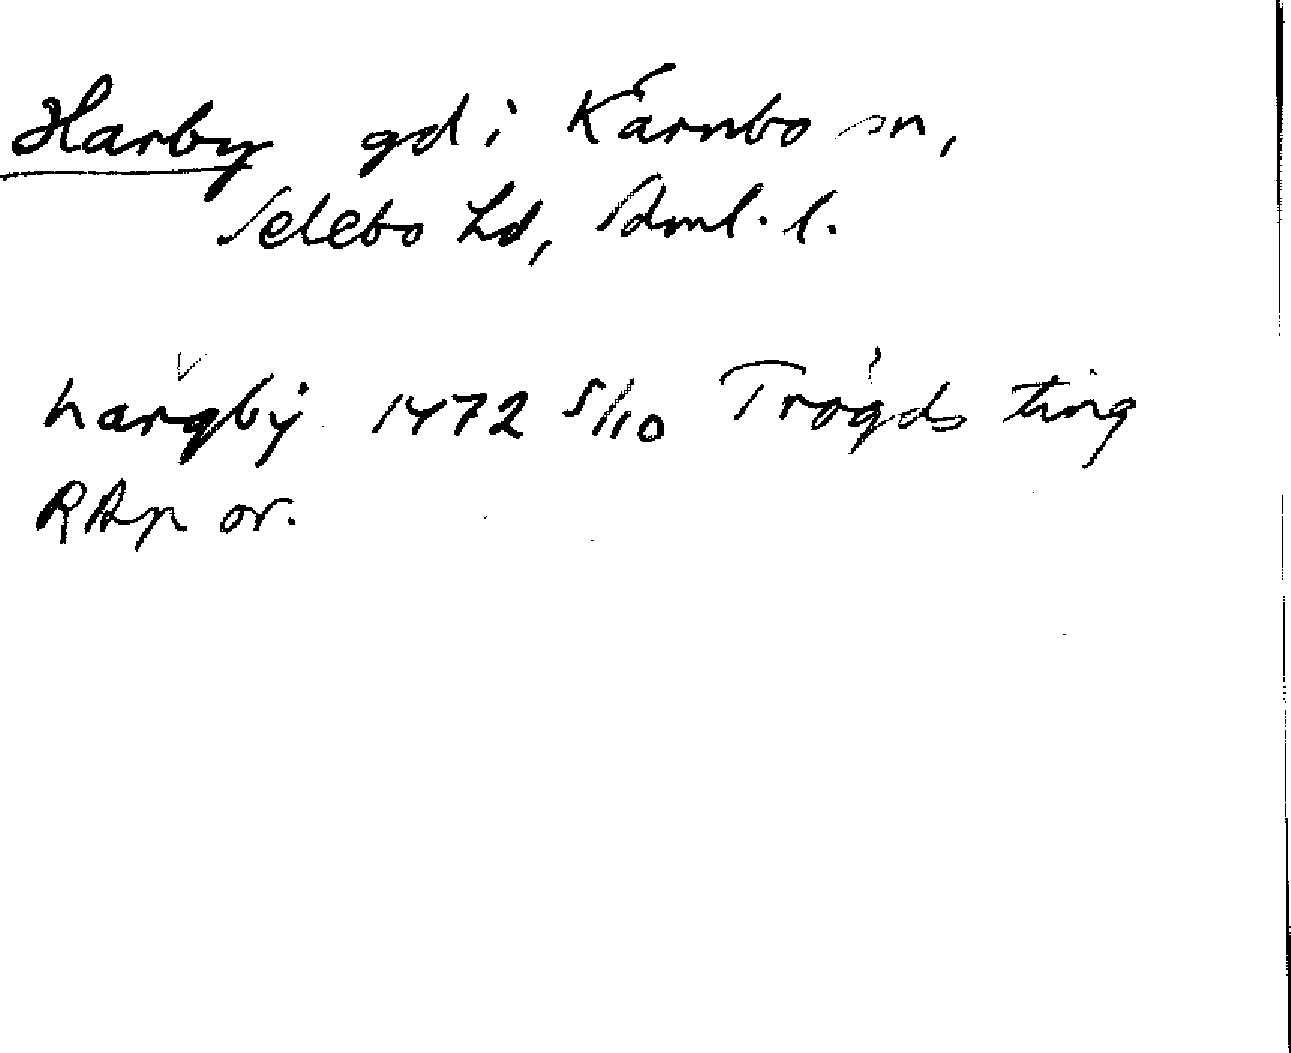 Harby gd i Kärnbo sn,
Selebo hd, Sdml. l.
hargbÿ 1472 5/10 Trögds ting
RAp or.